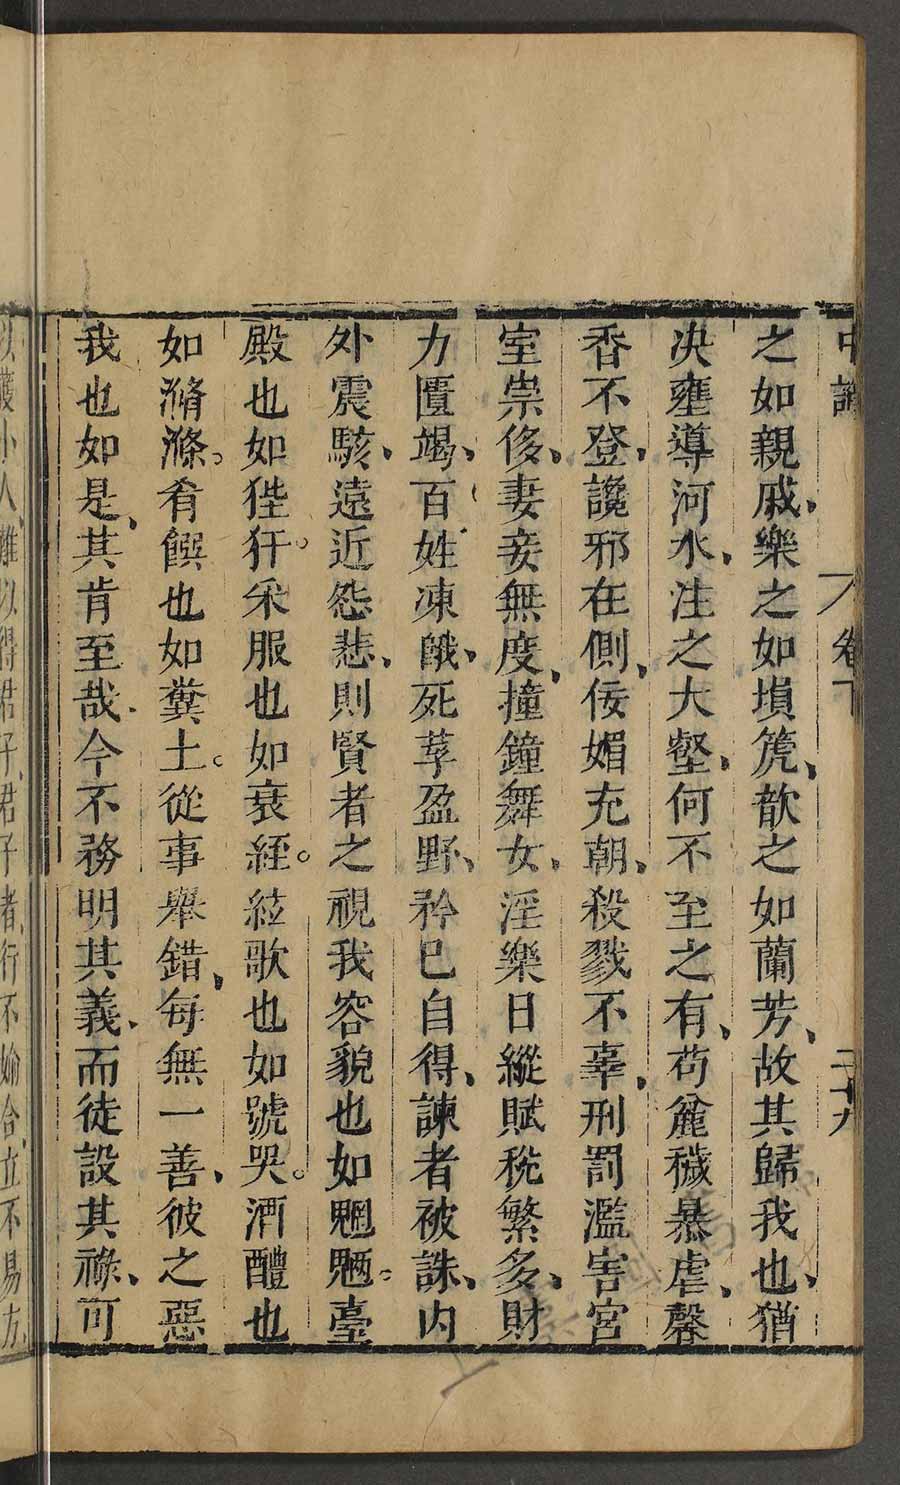 中論
卷下
二十九
之如親戚、樂之如塤篪、歆之如蘭芳、故其歸我也、猶
决壅導河水、注之大壑、何不至之有、苟麄穢暴虐、馨
香不登、讒邪在側、佞媚充朝、殺戮不辜、刑罰濫害宮
室崇侈、妻妾無度、撞鐘舞女、淫樂日縱賦稅繁多、財
力匱竭、百姓凍餓、死莩盈野、矜已自得、諫者被誅、内
外震駭、遠近怨悲、則賢者之視我容貌也如魍魎。臺
殿也如狴犴。采服也如衰絰。絃歌也如號哭。酒醴也
如滫滌。肴饌也如糞土。從事舉錯、每無一善、彼之惡
我也如是、其肯至哉、今不務明其義、而徒設其祿、可
以獲小人、難以得君子、君子者、行不婾合、立不易方、